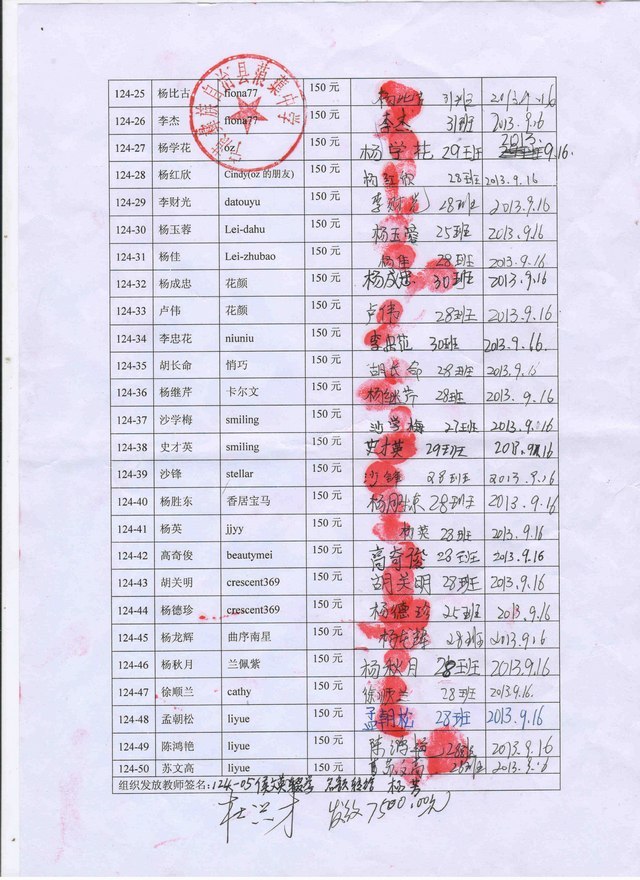 124-25 杨比古 fiona77 150 元 杨比古 31班 2013.9.16
124-26 李杰 fiona77 150 元 李杰 31班 2013.9.16
124-27 杨学花 oz 150 元 杨学花 29班 2013.9.16.
124-28 杨红欣 Cindy(oz 的朋友) 150 元 杨红欣 28班 2013.9.16
124-29 李财光 datouyu 150 元 李财光 28班 2013.9.16
124-30 杨玉蓉 Lei-dahu 150 元 25班 2013.9.16
124-31 杨佳 Lei-zhubao 150 元 杨佳 28班 2013.9.16
124-32 杨成忠 花颜 150 元 杨成忠 30班 2013.9.16
124-33 卢伟 花颜 150 元 卢伟 28班 2013.9.16
124-34 李忠花 niuniu 150 元 李忠花 30班 2013.9.16.
124-35 胡长命 悄巧 150 元 胡长命 28班 2013.9.16
124-36 杨继芹 卡尔文 150 元 杨继芹 28班 2013.9.16
124-37 沙学梅 smiling 150 元 沙学梅 27班 2013.9.16
124-38 史才英 smiling 150 元 史才英 29班 9.16
124-39 沙锋 stellar 150 元 沙锋 28班 2013.9.16
124-40 杨胜东 香居宝马 150 元 杨胜东 28班 2013.9.16
124-41 杨英 jjyy 150 元 杨英 28班 2013.9.16
124-42 高奇俊 beautymei 150 元 高奇俊 28班 2013.9.16
124-43 胡关明 crescent369 150 元 胡关明 28班 2013.9.16
124-44 杨德珍 crescent369 150 元 杨德珍 25班 2013.9.16
124-45 杨龙辉 曲序南星 150 元 杨龙辉 28班 2013.9.16
124-46 杨秋月 兰佩紫 150 元 杨秋月 28班 2013.9.16
124-47 徐顺兰 cathy 150 元 徐顺兰 28班 2013.9.16
124-48 孟朝松 liyue 150 元 孟朝松 28班 2013.9.16
124-49 陈鸿艳 liyue 150 元 陈鸿艳 28班 2013.9.16
124-50 苏文高 liyue 150 元 苏文高 2013.9.16
组织发放教师签名: 124-05 杨芳
发放7500.00元